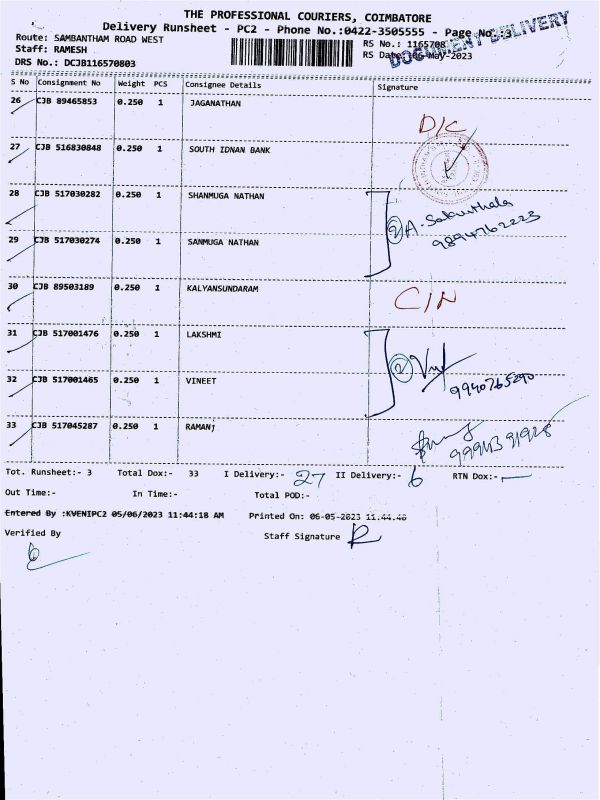 THE PROFESSIONAL COURIERS, COIMBATORE
Delivery Runsheet - PC2 - Phone No.:0422-3505555 - Page No.:3
DOCUMENT DELIVERY
Route: SAMBANTHAM ROAD WEST RS No.: 1165708
Staff: RAMESH RS Date: 06-May-2023
DRS No.: DCJB116570803
S No Consignment No Weight PCS Consignee Details Signature
26 CJB 89465853 0.250 1 JAGANATHAN D/C
27 CJB 516830848 0.250 1 SOUTH IDNAN BANK
28 CJB 517030282 0.250 1 SHANMUGA NATHAN
2 A. Sakunthala
9894762223
29 CJB 517030274 0.250 1 SANMUGA NATHAN
30 CJB 89503189 0.250 1 KALYANSUNDARAM C/N
31 CJB 517001476 0.250 1 LAKSHMI
2
9940765290
32 CJB 517001465 0.250 1 VINEET
33 CJB 517045287 0.250 1 RAMANj
Tot. Runsheet:- 3 Total Dox:- 33 I Delivery:- 27 II Delivery:- 6 RTN Dox:- —
Out Time:- In Time:- Total POD:-
Entered By :KVENIPC2 05/06/2023 11:44:18 AM Printed On: 06-05-2023 11.44.46
Verified By Staff Signature R